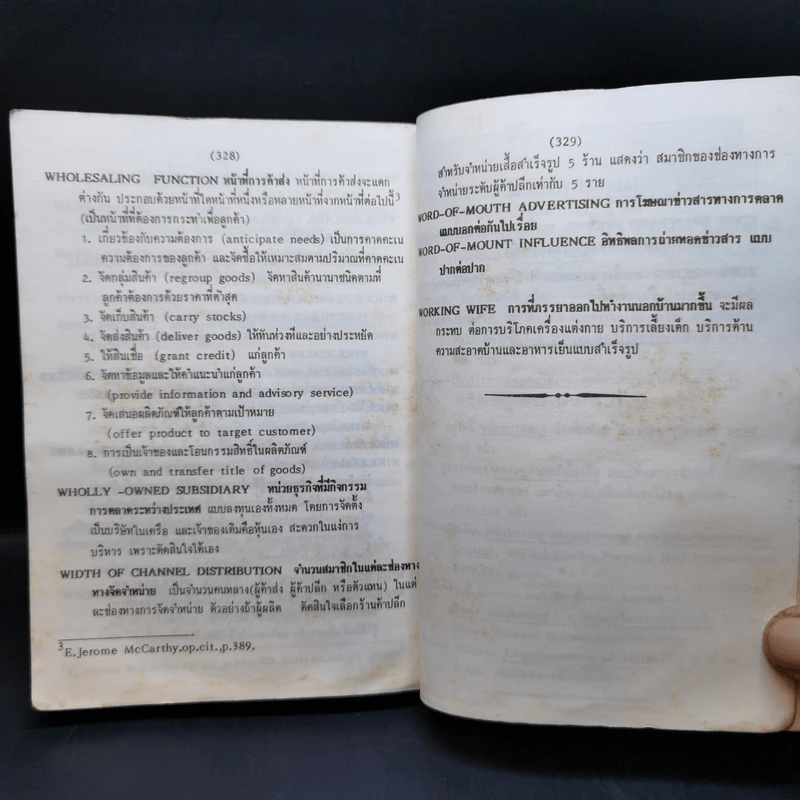 (328)
WHOLESALING FUNCTION หน้าที่การค้าส่ง หน้าที่การค้าส่งจะแตก
ต่างกัน ประกอบด้วยหน้าที่ใดหน้าที่หนึ่งหรือหลายหน้าที่จากหน้าที่ต่อไปนี้3
(เป็นหน้าที่ที่ต้องการกระทำเพื่อลูกค้า)
1. เกี่ยวข้องกับความต้องการ (anticipate needs) เป็นการคาดคะเน
ความต้องการของลูกค้า และจัดซื้อให้เหมาะสมตามปริมาณที่คาดคะเน
2. จัดกลุ่มสินค้า (regroup goods) จัดหาสินค้านานาชนิดตามที่
ลูกค้าต้องการด้วยราคาที่ต่ำสุด
3. จัดเก็บสินค้า (carry stocks)
4. จัดส่งสินค้า (deliver goods) ให้ทันท่วงทีและอย่างประหยัด
5. ให้สินเชื่อ (grant credit) แก่ลูกค้า
6. จัดหาข้อมูลและให้คำแนะนำแก่ลูกค้า
(provide information and advisory service)
7. จัดเสนอผลิตภัณฑ์ให้ลูกค้าตามเป้าหมาย
(offer product to target customer)
8. การเป็นเจ้าของและโอนกรรมสิทธิ์ในผลิตภัณฑ์
(own and transfer title of goods)
WHOLLY -OWNED SUBSIDIARY หน่วยธุรกิจที่มีกิจกรรม
การตลาดระหว่างประเทศ แบบลงทุนเองทั้งหมด โดยการจัดตั้ง
เป็นบริษัทในเครือ และเจ้าของเดิมคือหุ้นเอง สะดวกในแง่การ
บริหาร เพราะตัดสินใจได้เอง
WIDTH OF CHANNEL DISTRIBUTION จำนวนสมาชิกในแต่ละช่องทาง
ทางจัดจำหน่าย เป็นจำนวนคนหลาง(ผู้ค้าส่ง ผู้ค้าปลีก หรือตัวแทน) ในแต่
ละช่องทางการจัดจำหน่าย ตัวอย่างถ้าผู้ผลิต ตัดสินใจเลือกร้านค้าปลีก
3E.Jerome McCarthy.op.cit.,p.389,
(329)
สำหรับจำหน่ายเสื้อสำเร็จรูป 5 ร้าน แสดงว่า สมาชิกของช่องทางการ
จำหน่ายระดับผู้ค้าปลีกเท่ากับ 5 ราย
WORD-OF-MOUTH ADVERTISING การโฆษณาข่าวสารทางการตลาด
แบบบอกต่อกันไปเรื่อย
WORD-OF-MOUNT INFLUENCE อิทธิพลการถ่ายทอดข่าวสาร แบบ
ปากต่อปาก
WORKING WIFE การที่ภรรยาออกไปทำงานนอกบ้านมากขึ้น จะมีผล
กระทบ ต่อการบริโภคเครื่องแต่งกาย บริการเลี้ยงเด็ก บริการด้าน
ความสะอาดบ้านและอาหารเย็นแบบสำเร็จรูป